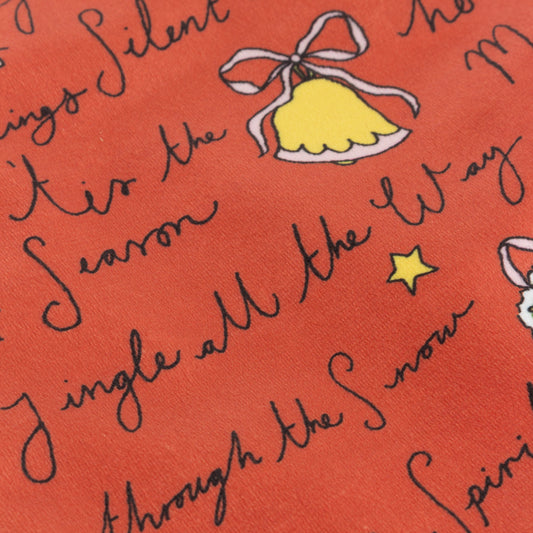 Silent
'tis the
Season
Jingle all the Way
through the Snow